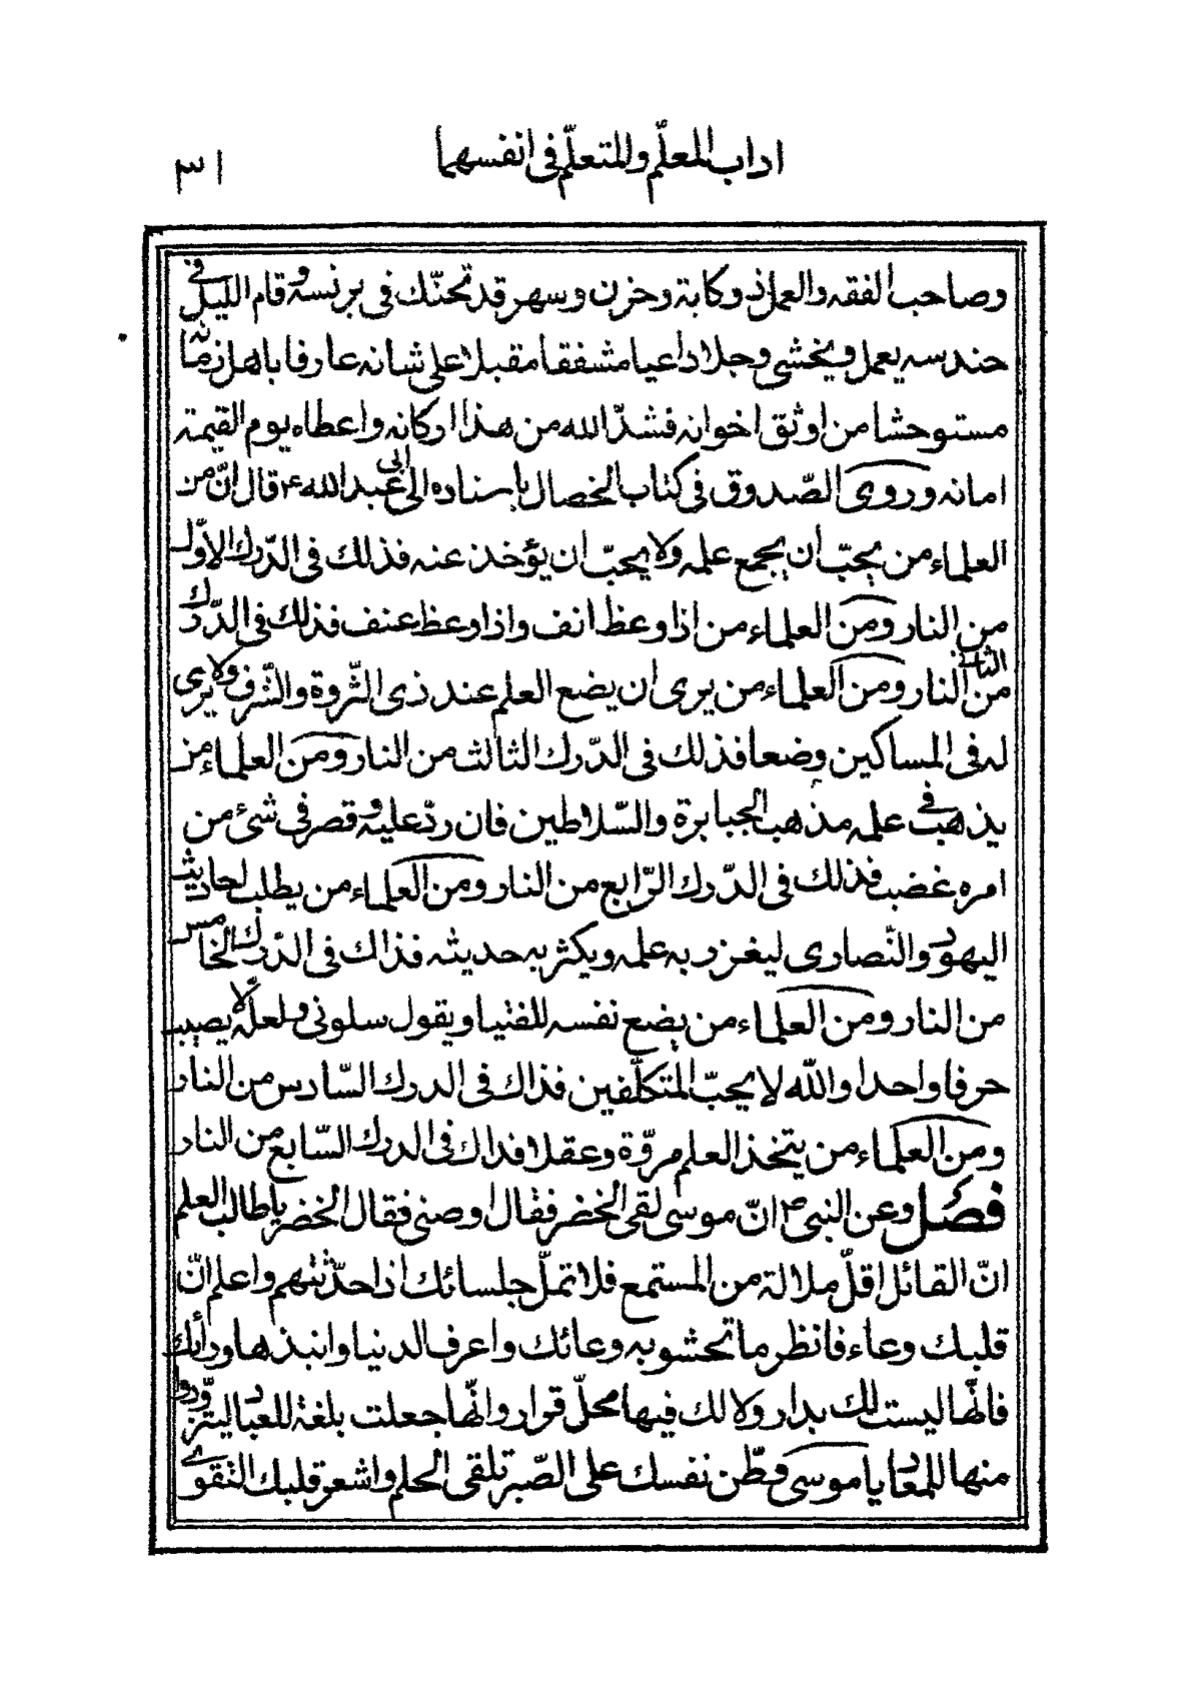 اداب المعلّم والمتعلّم فى انفسهما
٣١
وصاحب الفقه والعمل ذو كابة وحزن وسهر قد تحنّك فى برنسه وقام الليل فى
حندسه يعمل ويخشى وجلا داعيا مشفقا مقبلا على شانه عارفا باهل زمانه
مستوحشا من اوثق اخوانه فشدّ الله من هذا اركانه واعطاه يوم القيمة
امانه وروى الصّدوق فى كتاب الخصال باسناده الى ابى عبد الله ع قال انّ من
العلماء من يحبّ ان يجمع علمه ولا يحبّ ان يؤخذ عنه فذلك فى الدّرك الاوّل
من النار ومن العلماء من اذا وعظ انف واذا وعظ عنف فذلك فى الدّرك
الثانى من النار ومن العلماء من يرى ان يضع العلم عند ذى الثّروة والشّرف ولا يرى
له فى المساكين وضعا فذلك فى الدّرك الثالث من النار ومن العلماء من
يذهب فى علمه مذهب الجبابرة والسّلاطين فان ردّ عليه وقصر فى شئ من
امره غضب فذلك فى الدّرك الرّابع من النار ومن العلماء من يطلب احاديث
اليهود والنّصارى ليغزر به علمه ويكثر به حديثه فذاك فى الدّرك الخامس
من النار ومن العلماء من يضع نفسه للفتيا ويقول سلونى ولعلّه لا يصيب
حرفا واحدا والله لا يحبّ المتكلّفين فذاك فى الدرك السّادس من النار
ومن العلماء من يتخذ العلم مروّة وعقلا فذاك فى الدرك السّابع من النار
فصل وعن النبى ص انّ موسى لقى الخضر فقال اوصنى فقال الخضر ياطالب العلم
انّ القائل اقلّ ملالة من المستمع فلا تملّ جلسائك اذا حدّثتهم واعلم انّ
قلبك وعاء فانظر ما تحشو به وعائك واعرف الدنيا وانبذها ورائك
فانّها ليست لك بدار ولا لك فيها محلّ قرار وانّها جعلت بلغة للعباد ليتزوّدوا
منها للمعاد يا موسى وطّن نفسك على الصّبر تلقى الحلم واشعر قلبك التقوى